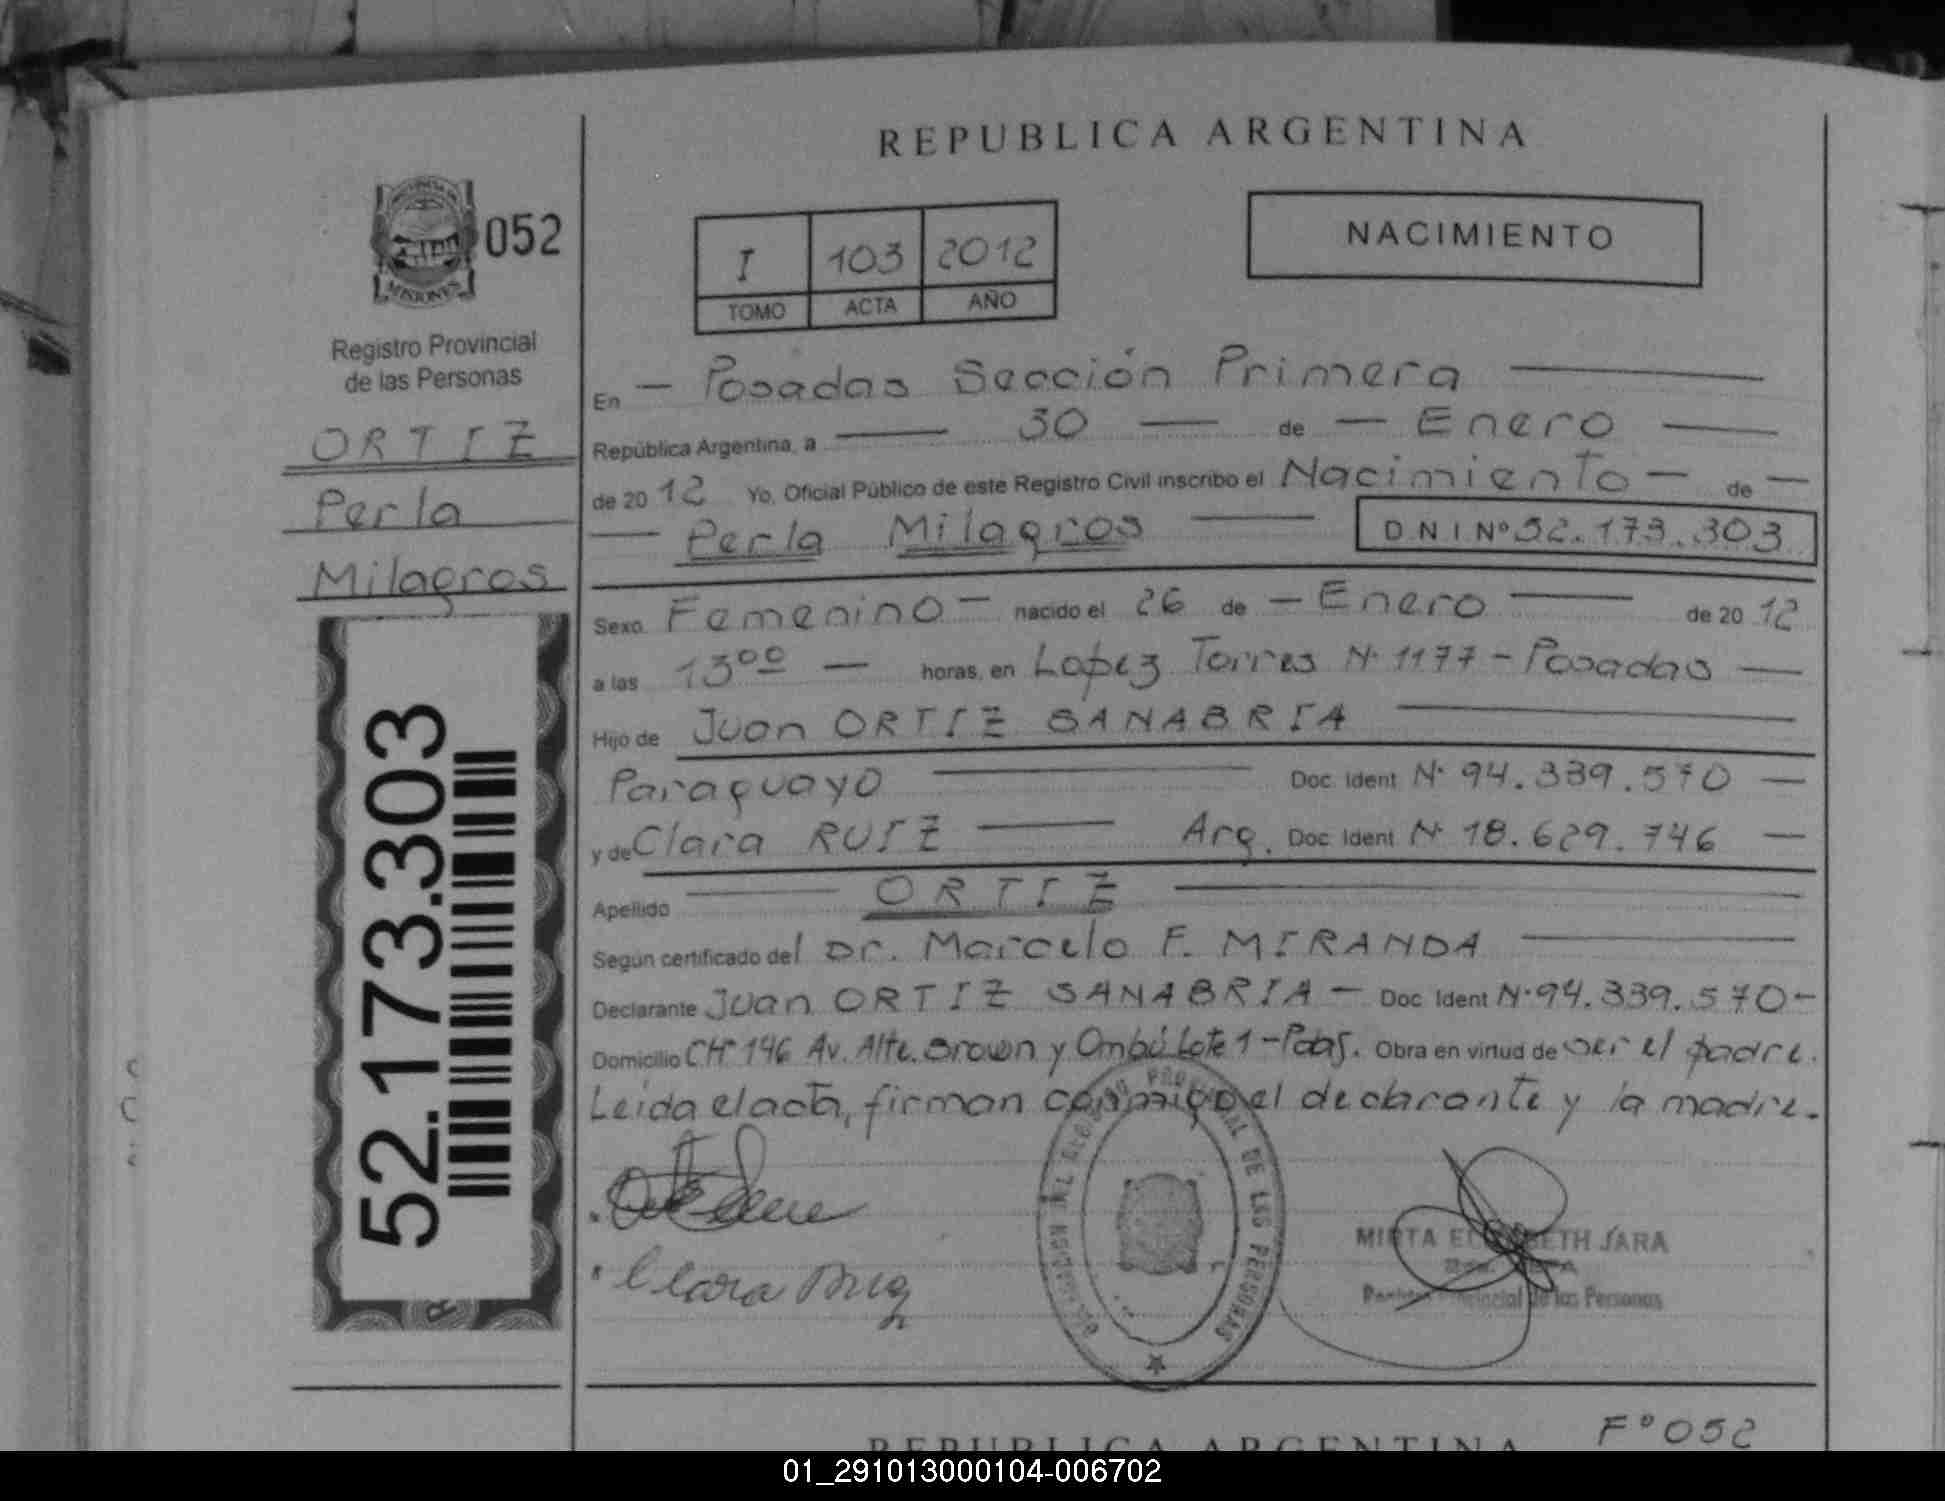 REPUBLICA ARGENTINA
052
MISIONES
Registro Provincial
de las Personas
ORTIZ
Perla
Milagros
52.173.303
I 103 2012
TOMO ACTA AÑO
NACIMIENTO
En — Posadas Sección Primera —
República Argentina, a — 30 — de — Enero —
de 2012 Yo, Oficial Público de este Registro Civil inscribo el Nacimiento — de —
— Perla Milagros — D.N.I Nº 52.173.303
Sexo Femenino — nacido el 26 de — Enero — de 2012
a las 13ºº — horas, en Lopez Torres Nº 1177 - Posadas —
Hijo de Juan ORTIZ SANABRIA —
Paraguayo — Doc. Ident Nº 94.339.570 —
y de Clara RUIZ — Arg. Doc. Ident Nº 18.629.746 —
Apellido — ORTIZ —
Según certificado del Dr. Marcelo F. MIRANDA —
Declarante Juan ORTIZ SANABRIA — Doc. Ident Nº 94.339.570 -
Domicilio CHº 146 Av. Alte. Brown y Ombú Lote 1 - Pdas. Obra en virtud de ser el padre.
Leida el acta, firman conmigo el declarante y la madre.
Clara Ruiz
PROVINCIAL DE LAS PERSONAS
MIRTA ELIZABETH JARA
Provincial de las Personas
Fº 052
REPUBLICA ARGENTINA
01_291013000104-006702